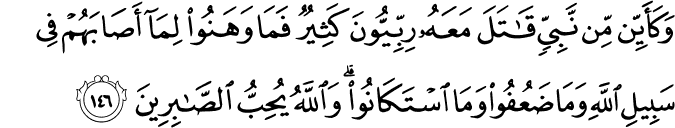 وَكَأَيِّن مِّن نَّبِيٍّ قَٰتَلَ مَعَهُۥ رِبِّيُّونَ كَثِيرٌ فَمَا وَهَنُوا۟ لِمَآ أَصَابَهُمْ فِى
سَبِيلِ ٱللَّهِ وَمَا ضَعُفُوا۟ وَمَا ٱسْتَكَانُوا۟ ۗ وَٱللَّهُ يُحِبُّ ٱلصَّٰبِرِينَ ١٤٦